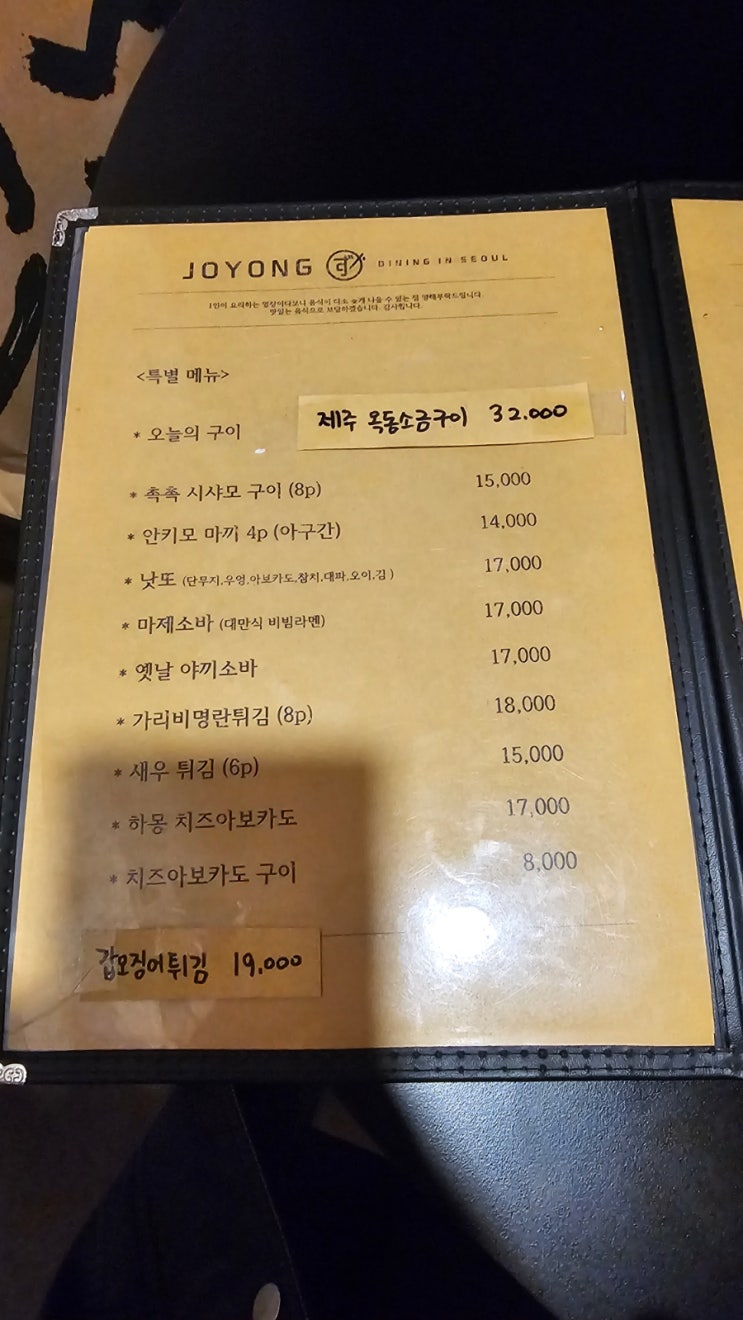 JOYONG ず DINING IN SEOUL
1인이 요리하는 영상이다보니 음식이 다소 늦게 나올 수 있는 점 양해부탁드립니다.
맛있는 음식으로 보답하겠습니다. 감사합니다.
<특별 메뉴>
* 오늘의 구이 제주 옥돔소금구이 32.000
* 촉촉 시샤모 구이 (8p) 15,000
* 안키모 마끼 4p (아구간) 14,000
* 낫또 (단무지,우엉,아보카도,참치,대파,오이,김) 17,000
* 마제소바 (대만식 비빔라멘) 17,000
* 옛날 야끼소바 17,000
* 가리비명란튀김 (8p) 18,000
* 새우 튀김 (6p) 15,000
* 하몽 치즈아보카도 17,000
* 치즈아보카도 구이 8,000
갑오징어튀김 19.000